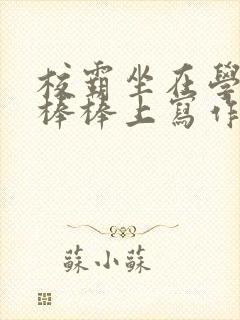 校霸坐在學
棒棒上寫作
蘇小蘇